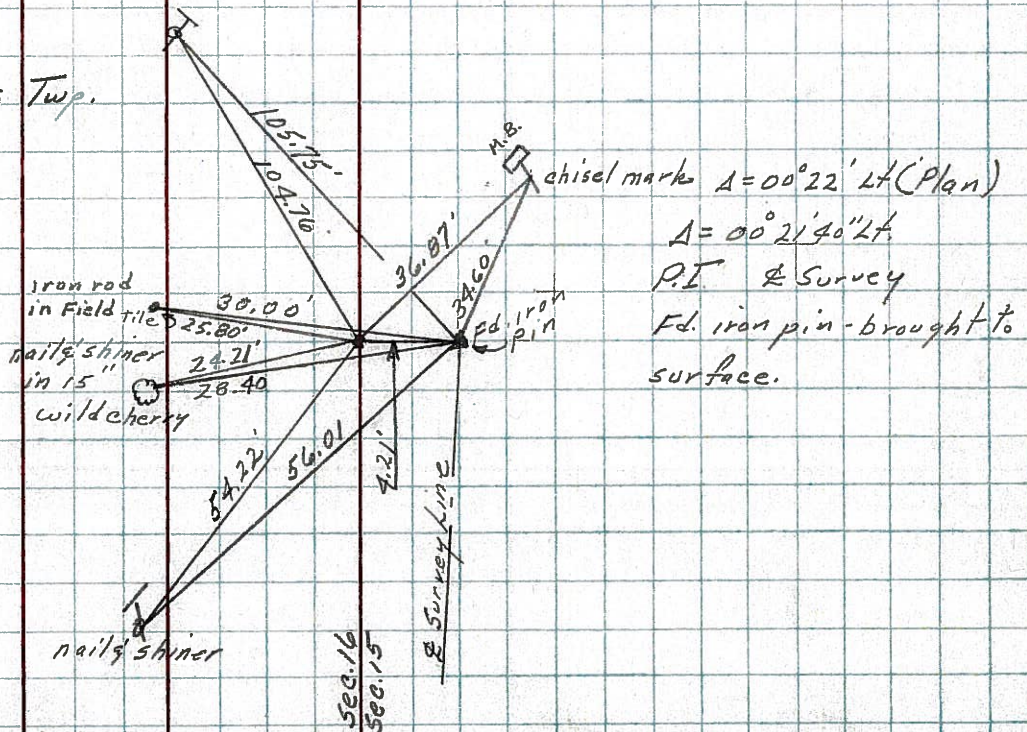 Twp.
105.75'
104.76'
M.B.
chisel mark Δ=00°22' Lt (Plan)
36.87'
34.60'
Δ=00°21'40" Lt.
P.I. ℄ Survey
Fd. iron pin - brought to
surface.
iron rod
in Field tile
30.00'
25.80'
Fd. iron
pin
nail & shiner
in 15"
wild cherry
24.21'
28.40
54.22'
56.01
4.21'
℄ Survey Line
nail & shiner
Sec. 16
Sec. 15